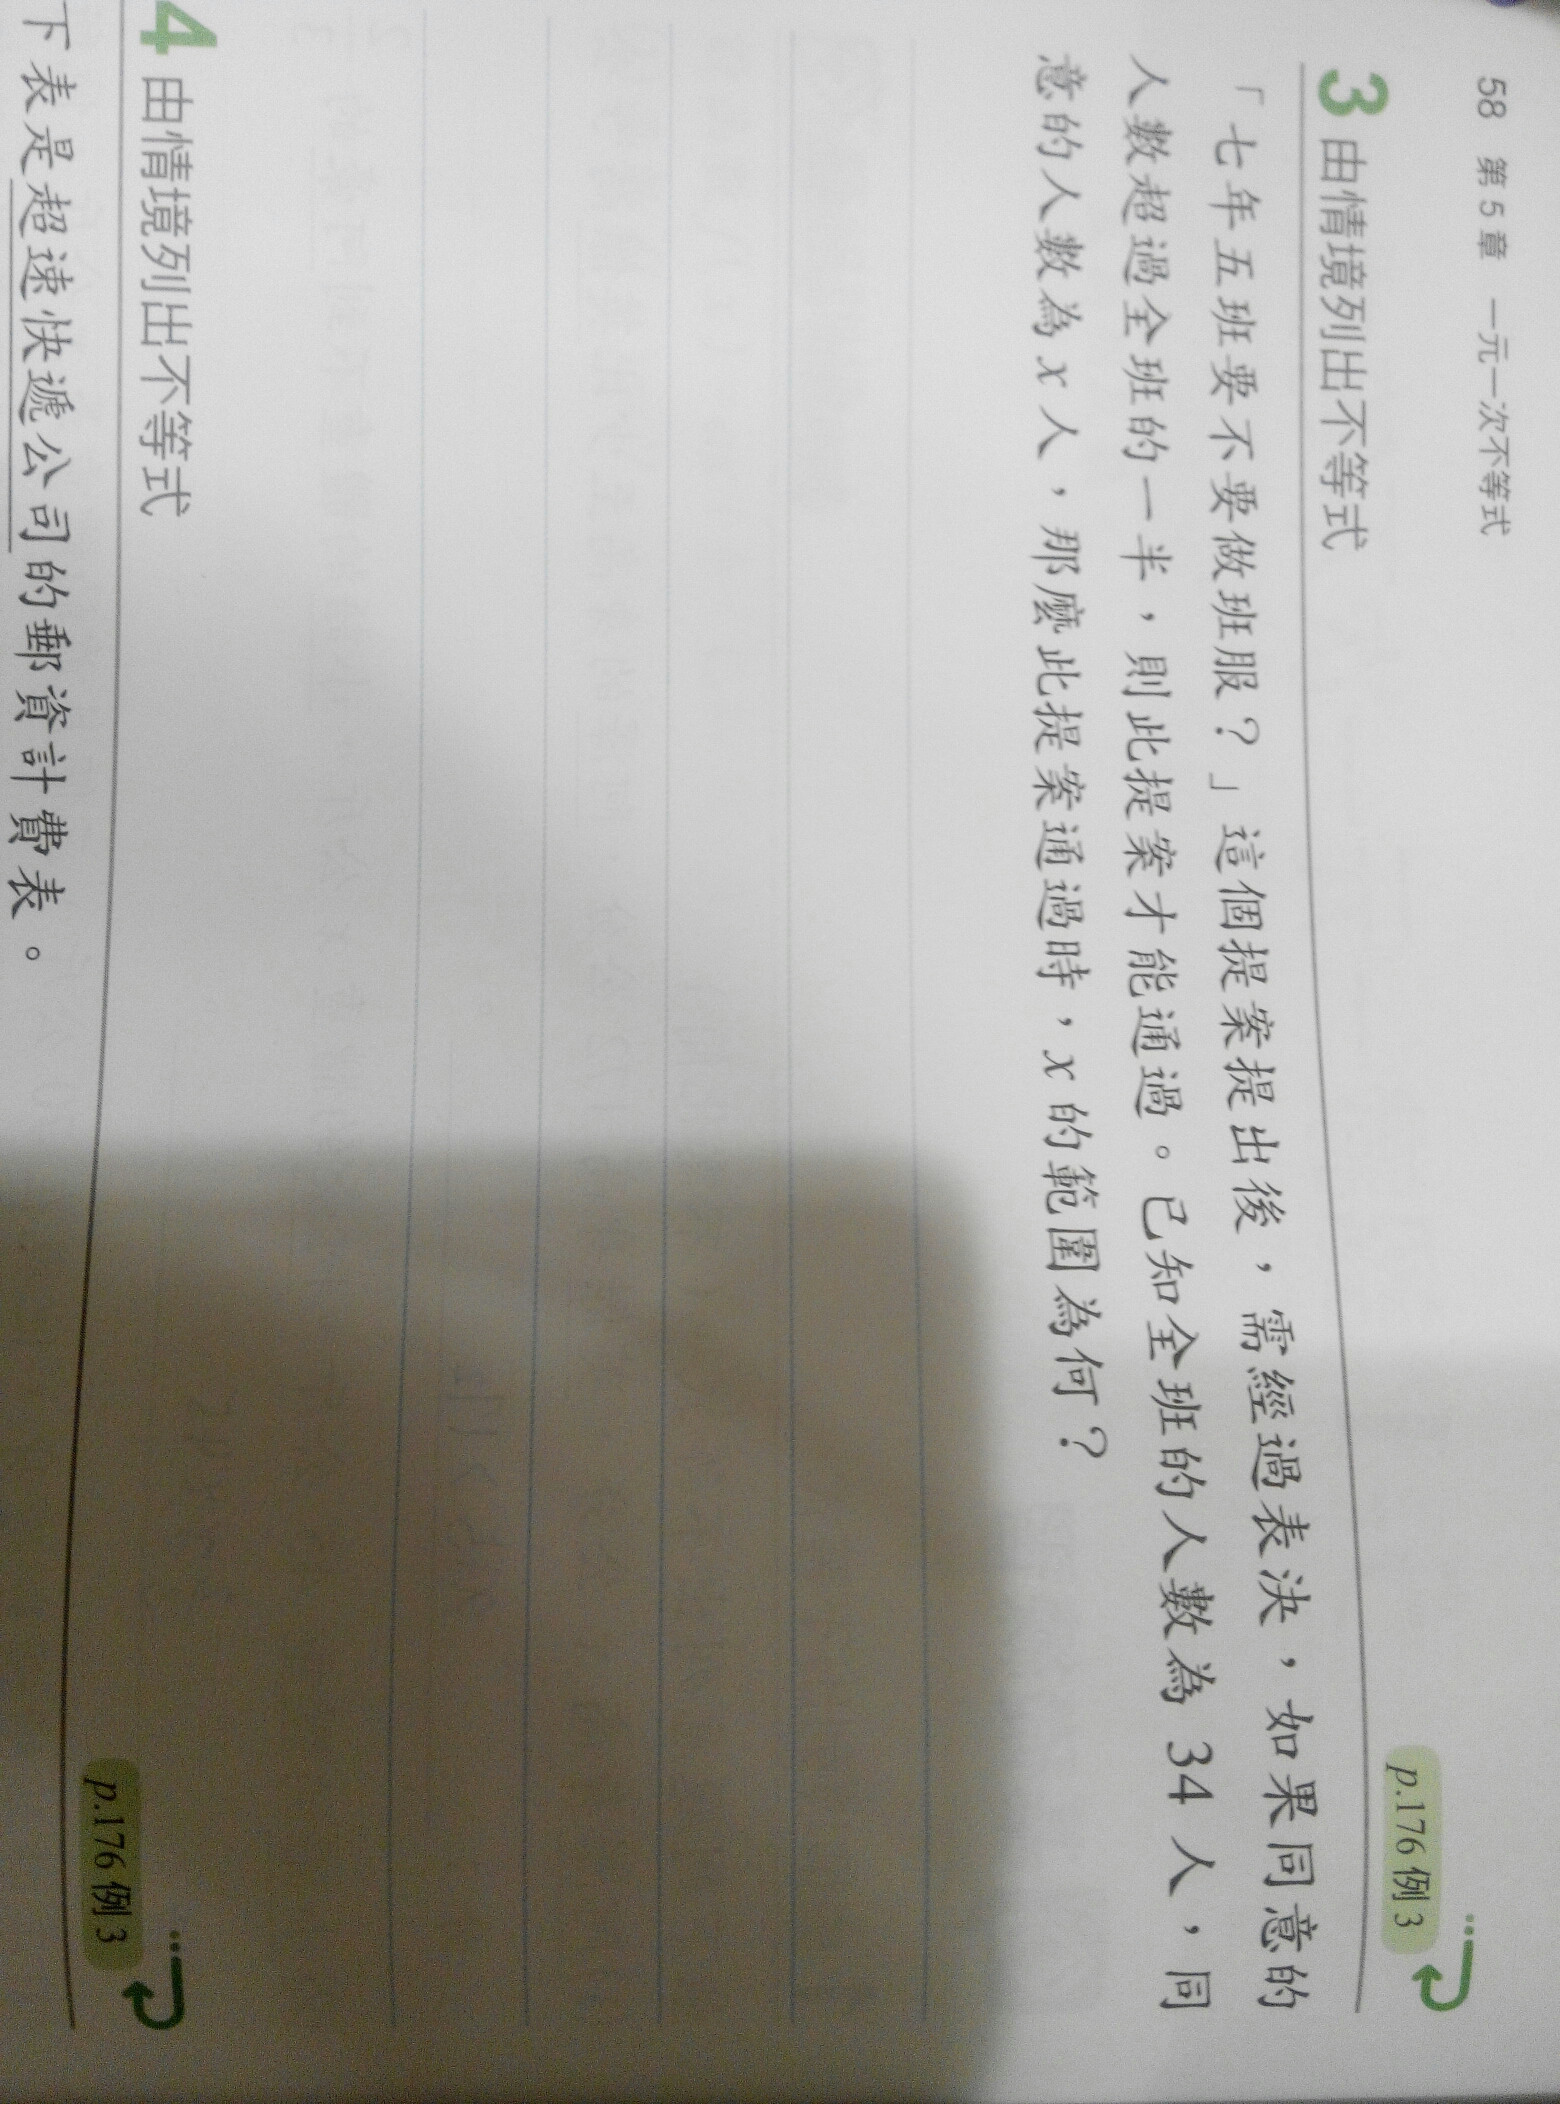 58 第5章 一元一次不等式
3 由情境列出不等式 p.176 例 3
「七年五班要不要做班服？」這個提案提出後，需經過表決，如果同意的
人數超過全班的一半，則此提案才能通過。已知全班的人數為 34 人，同
意的人數為 x 人，那麼此提案通過時，x 的範圍為何？
4 由情境列出不等式 p.176 例 3
下表是超速快遞公司的郵資計費表。